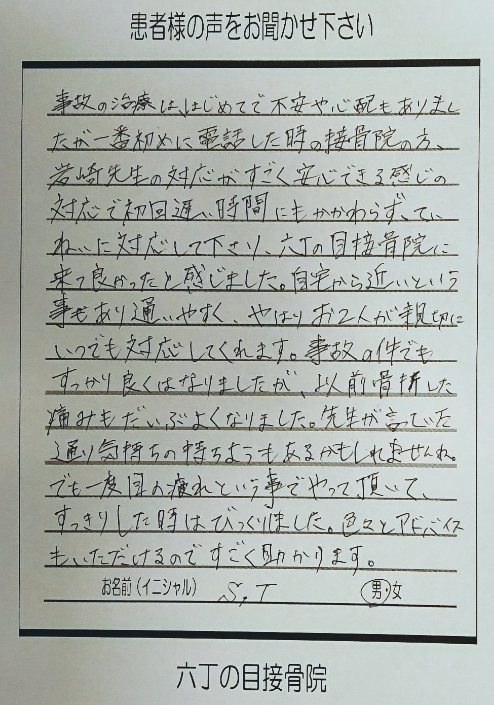 患者様の声をお聞かせ下さい
事故の治療は、はじめてで不安や心配もありまし
たが一番初めに電話した時の接骨院の方、
岩崎先生の対応がすごく安心できる感じの
対応で初回遅い時間にもかかわらず、てい
ねいに対応して下さり、六丁の目接骨院に
来て良かったと感じました。自宅から近いという
事もあり通いやすく、やはりお2人が親切に
いつでも対応してくれます。事故の件でも
すっかり良くはなりましたが、以前骨折した
痛みもだいぶよくなりました。先生が言ていた
通り気持ちの持ちようもあるかもしれませんね。
でも一度目の疲れという事でやって頂いて、
すっきりした時はびっくりしました。色々とアドバイス
もいただけるのですごく助かります。
お名前(イニシャル) S,T 男・女
六丁の目接骨院